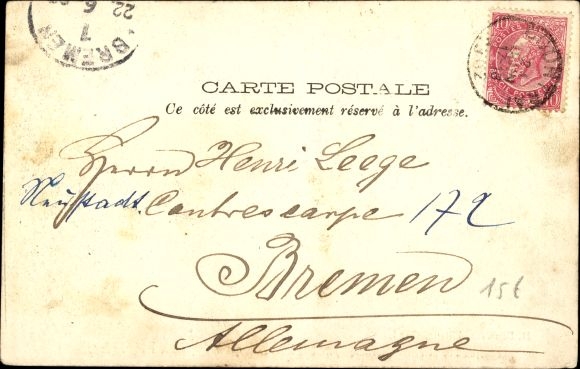 BREMEN
1
22 6
CARTE POSTALE
Ce côté est exclusivement réservé à l'adresse.
Herrn Henri Leege
Neustadt. Contrescarpe 172
Bremen
15€
Allemagne